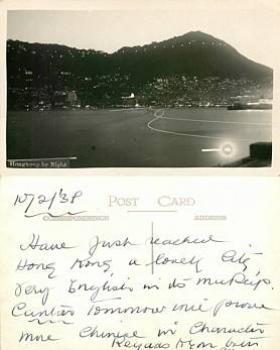 Hongkong by Night
10/2/'38
POST CARD
CORRESPONDENCE
ADDRESS
Have just reached
Hong Kong, a lovely City,
Very English in its makeup.
Canton tomorrow will prove
more Chinese in Character
Regards from